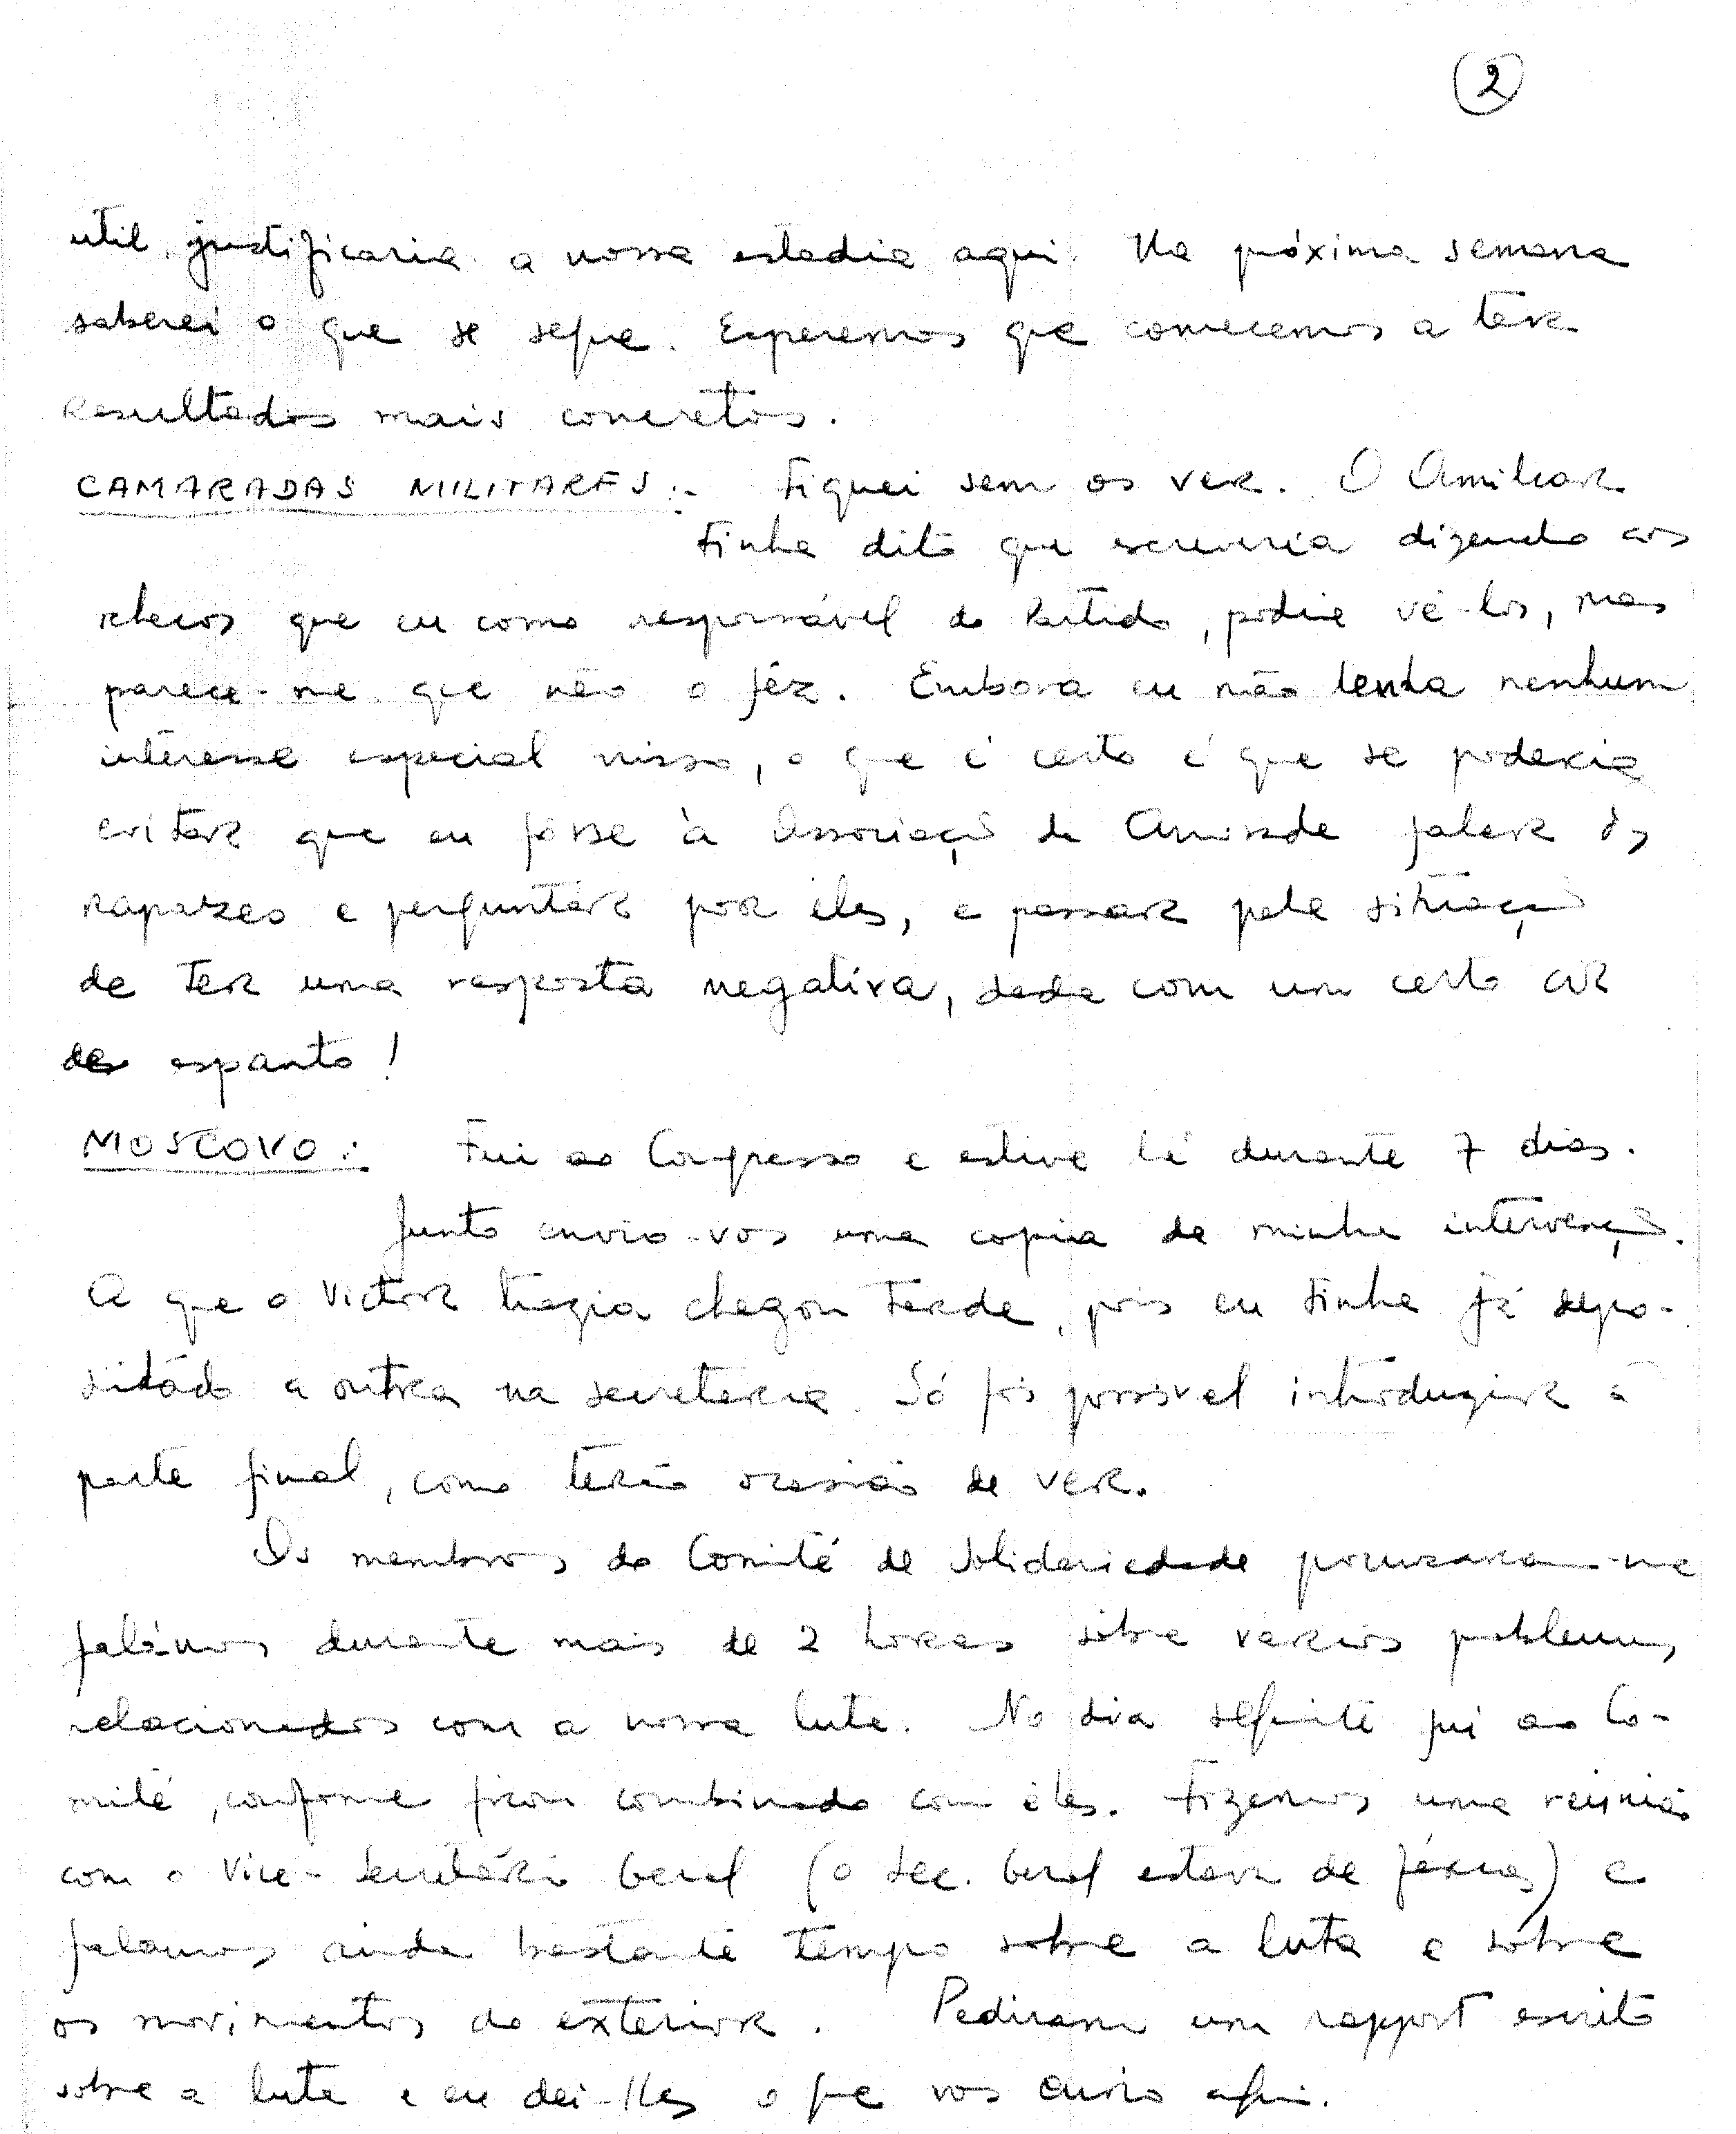 2
util, justificaria a nossa estadia aqui. Na próxima semana
saberei o que se segue. Esperemos que comecemos a ter
resultados mais concretos.
CAMARADAS MILITARES:- Fiquei sem os ver. O Amilcar
tinha dito que escreveria dizendo aos
checos que eu como responsável do Partido, podia vê-los, mas
parece-me que não o fêz. Embora eu não tenha nenhum
interesse especial nisso, o que é certo é que se poderia
evitar que eu fôsse à Associação de Amizade falar dos
rapazes e perguntar por êles, e passar pela situação
de ter uma resposta negativa, dada com um certo ar
de espanto!
MOSCOVO: Fui ao Congresso e estive lá durante 7 dias.
Junto envio-vos uma copia da minha intervenção.
A que o Victor trazia chegou tarde, pois eu tinha já depo-
sitado a outra na secretaria. Só foi possivel introduzir a
parte final, como terão ocasião de ver.
Os membros do Comité de Solidariedade procuraram-me
falámos durante mais de 2 horas sôbre varios problemas
relacionados com a nossa luta. No dia seguinte fui ao Co-
mité, conforme ficou combinado com êles. Fizemos uma reunião
com o Vice-Secretário Geral (o Sec. Geral estava de férias) e
falamos ainda bastante tempo sobre a luta e sôbre
os movimentos do exterior. Pediram um rapport escrito
sobre a luta e eu dei-lhes o que vos envio aqui.